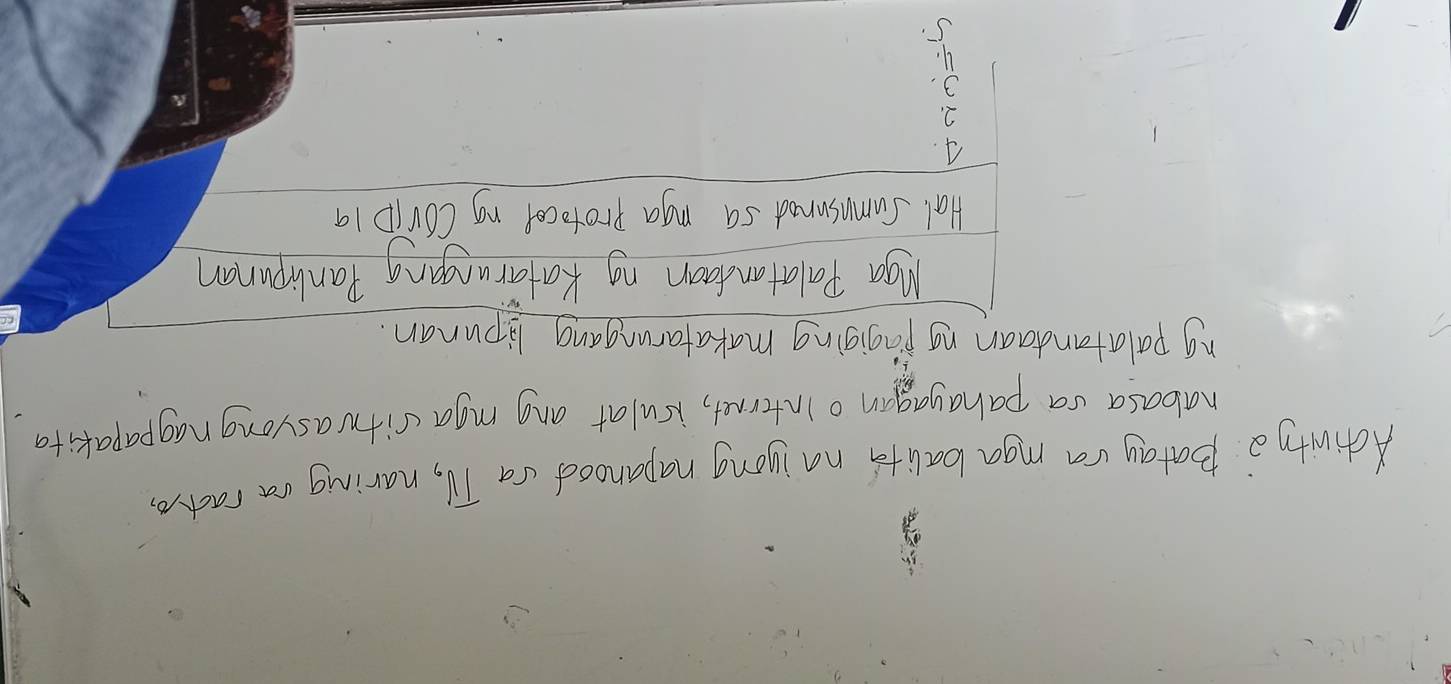 Activity 2: Batay sa mga balita na iyong napanood sa TV, narinig sa radyo,
nabasa sa pahayagan o Internet, isulat ang mga sitwasyong nagpapakita
ng palatandaan ng pagiging makatarungang lipunan.
Mga Palatandaan ng Katarungang Panlipunan
Hal. Sumusunod sa mga Protocol ng COVID 19
1.
2.
3.
4.
5.